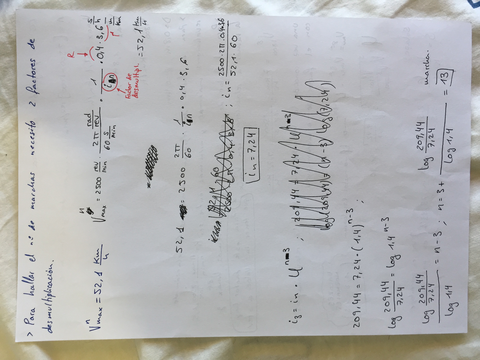 > Para hallar el nº de marchas necesito 2 factores de
desmultiplicación.
V^n max = 52,1 Km/h
V^n max = 2500 rev/min · 2π rad/rev / 60 s/min · 1/in · 0,4 · 3,6 s/h Km/m = 52,1 Km/h
R
Factor de desmultipl.
52,1 = 2500 · 2π/60 · 1/in · 0,4 · 3,6
; in = 2500·2π·0,4·3,6 / 52,1·60
in = 7,24
i3 = in · φ^n-3 ;
209,44 = 7,24 · (1,4)^n-3 ;
log 209,44/7,24 = log 1,4^n-3
log 209,44/7,24 / log 1,4 = n-3 ; n = 3 + log 209,44/7,24 / log 1,4 = 13 marchas.